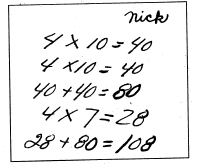 Nick
4 x 10 = 40
4 x 10 = 40
40 + 40 = 80
4 x 7 = 28
28 + 80 = 108